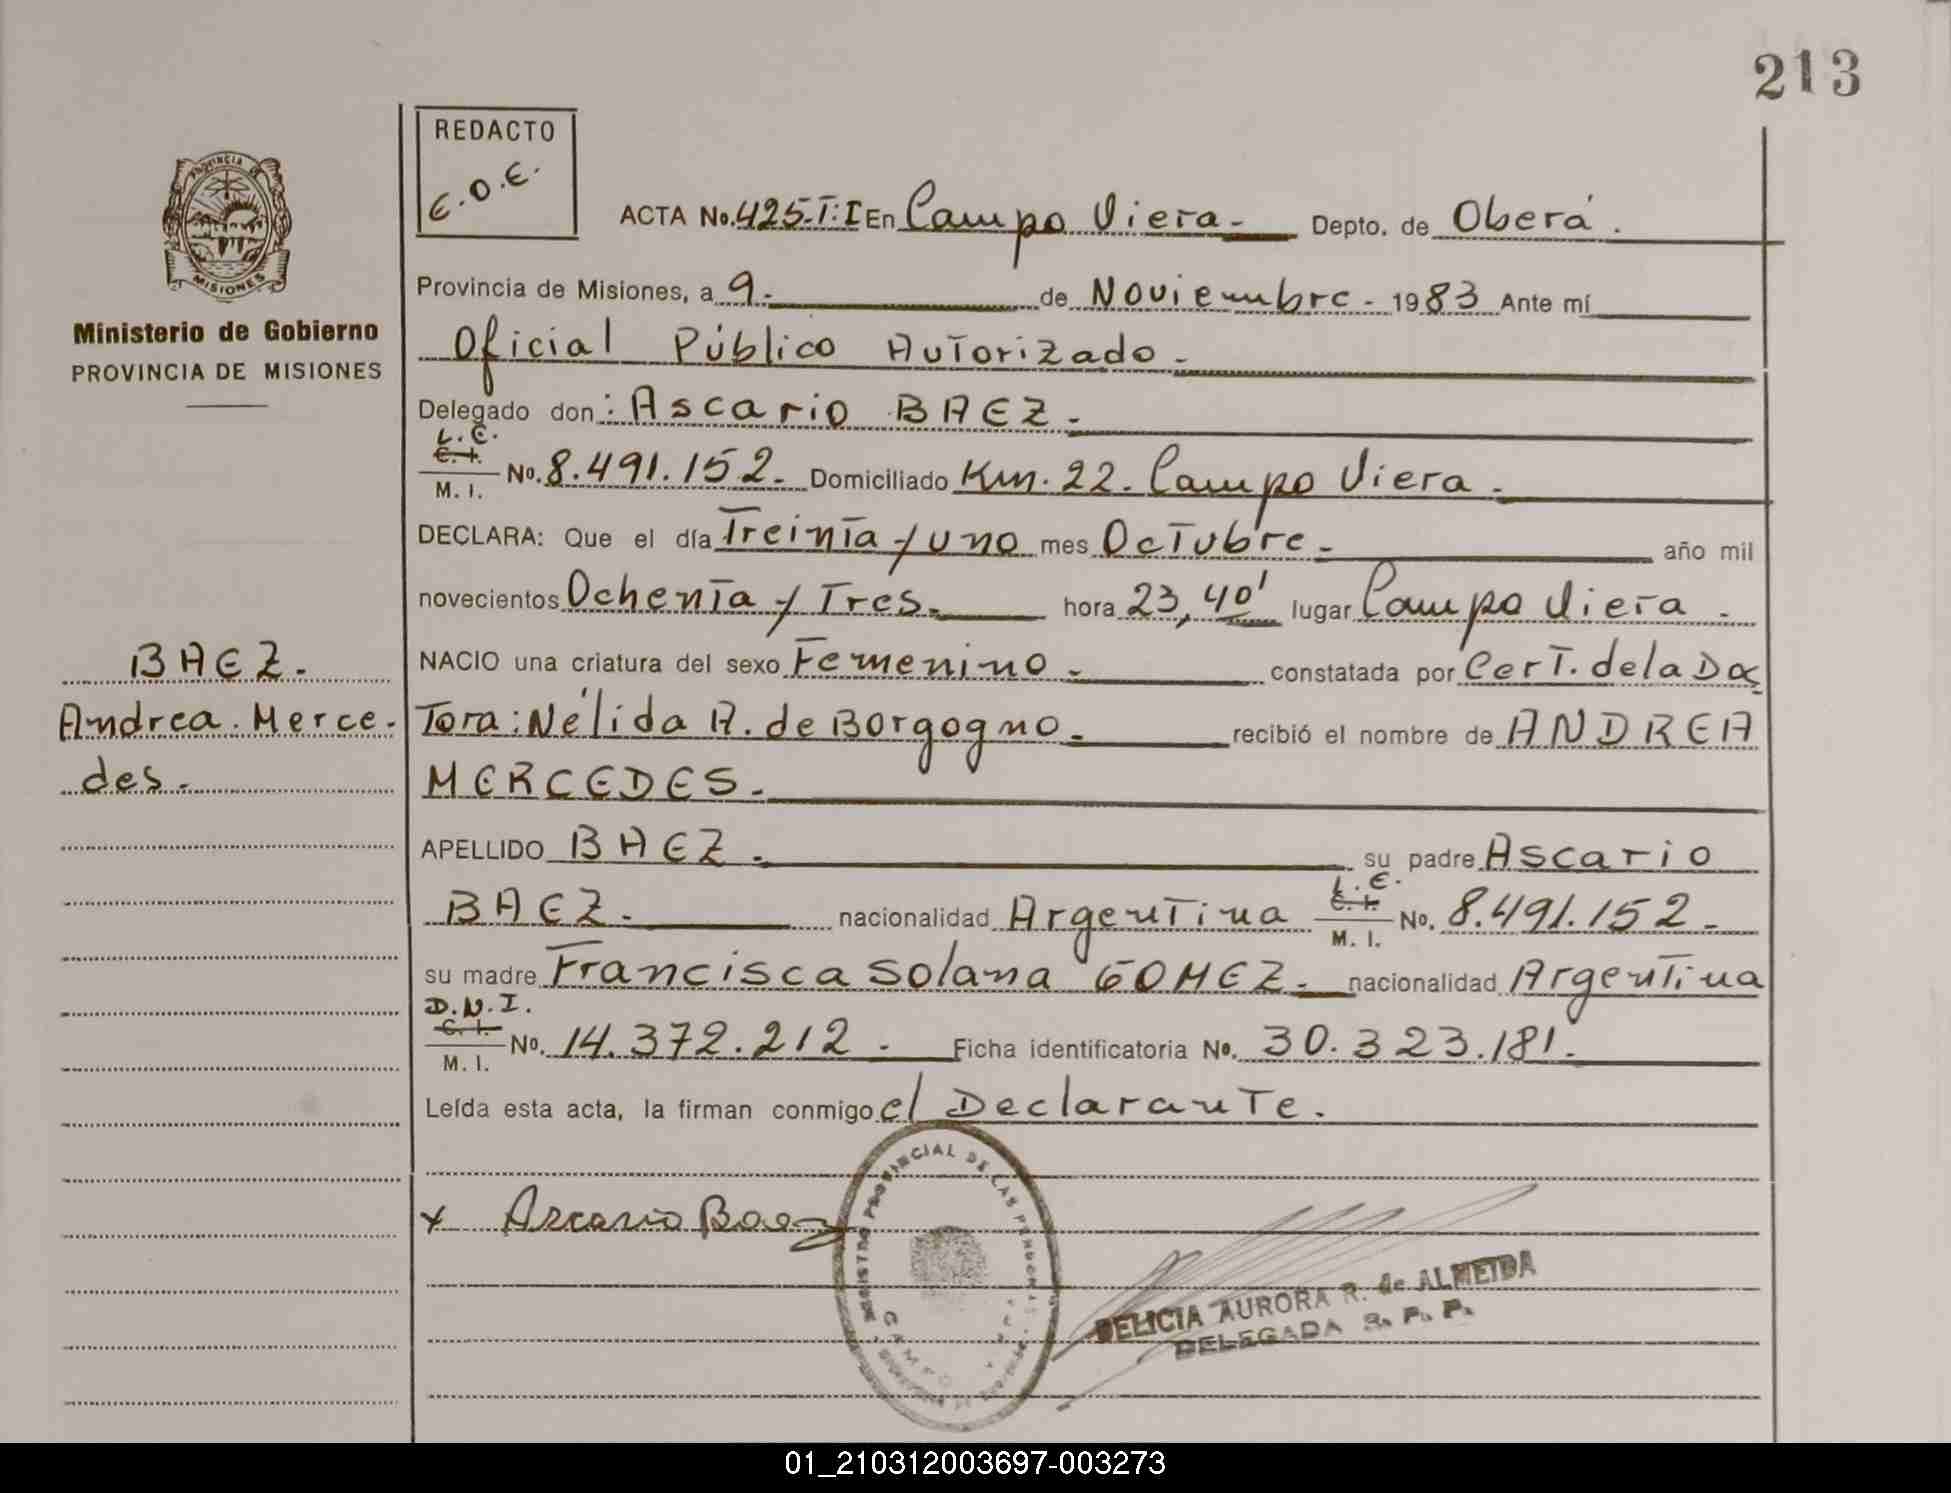 213
REDACTO
E.O.E.
PROVINCIA
MISIONES
Ministerio de Gobierno
PROVINCIA DE MISIONES
ACTA No. 425-T:I En Campo Viera.- Depto. de Oberá.
Provincia de Misiones, a 9.- de Noviembre.- 1983 Ante mí
Oficial Público Autorizado.-
Delegado don: Ascario BAEZ.-
L.E.
C. I.
M. I. No. 8.491.152.- Domiciliado Km. 22. Campo Viera.-
DECLARA: Que el día Treinta y uno mes Octubre.- año mil
novecientos Ochenta y Tres.- hora 23,40' lugar Campo Viera.
NACIO una criatura del sexo Femenino.- constatada por Cert. de la Doc
Tora: Nélida A. de Borgogno.- recibió el nombre de ANDREA
MERCEDES.-
BAEZ.
Andrea Merce-
des.-
APELLIDO BAEZ.- su padre Ascario
BAEZ.- nacionalidad Argentina L.E. C. I. M. I. No. 8.491.152.-
su madre Francisca Solana GOMEZ.- nacionalidad Argentina
D.N.I.
C. I.
M. I. No. 14.372.212.- Ficha identificatoria No. 30.323.181.-
Leída esta acta, la firman conmigo el Declarante.
x Ascario Baez
REGISTRO PROVINCIAL DE LAS PERSONAS
CAMPO
DELICIA AURORA R. de ALMEIDA
DELEGADA R. P. P.
01_210312003697-003273